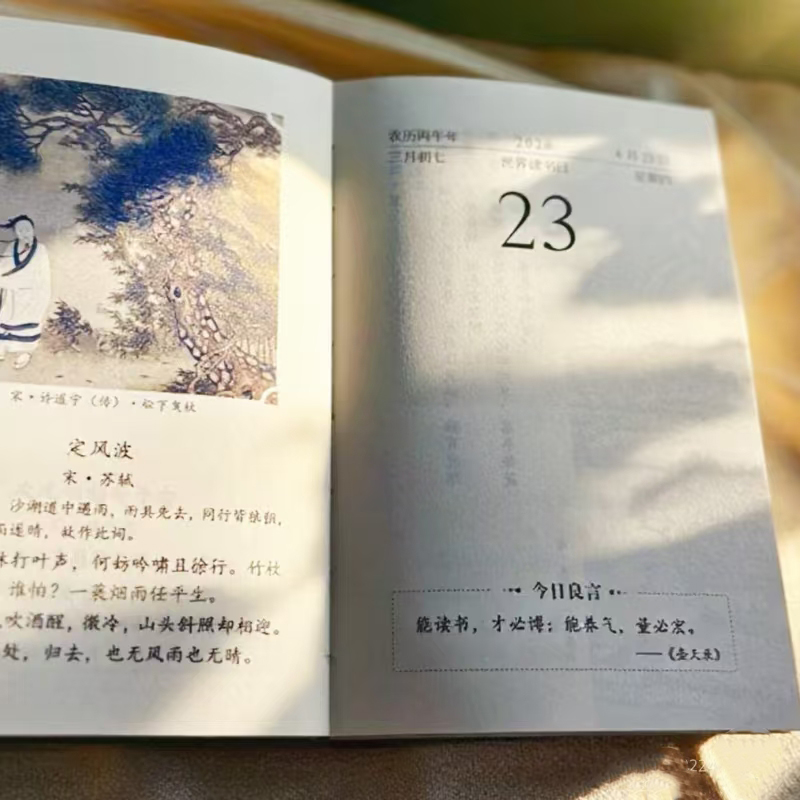 宋·许道宁（传）·松下曳杖
定风波
宋·苏轼
沙湖道中遇雨，雨具先去，同行皆狼狈，
遂晴，故作此词。
打叶声，何妨吟啸且徐行。竹杖
谁怕？一蓑烟雨任平生。
吹酒醒，微冷，山头斜照却相迎。
处，归去，也无风雨也无晴。
农历丙午年
三月初七
2026
世界读书日
4月23日
星期四
23
今日良言
能读书，才必博；能养气，量必宏。
——《壶天录》